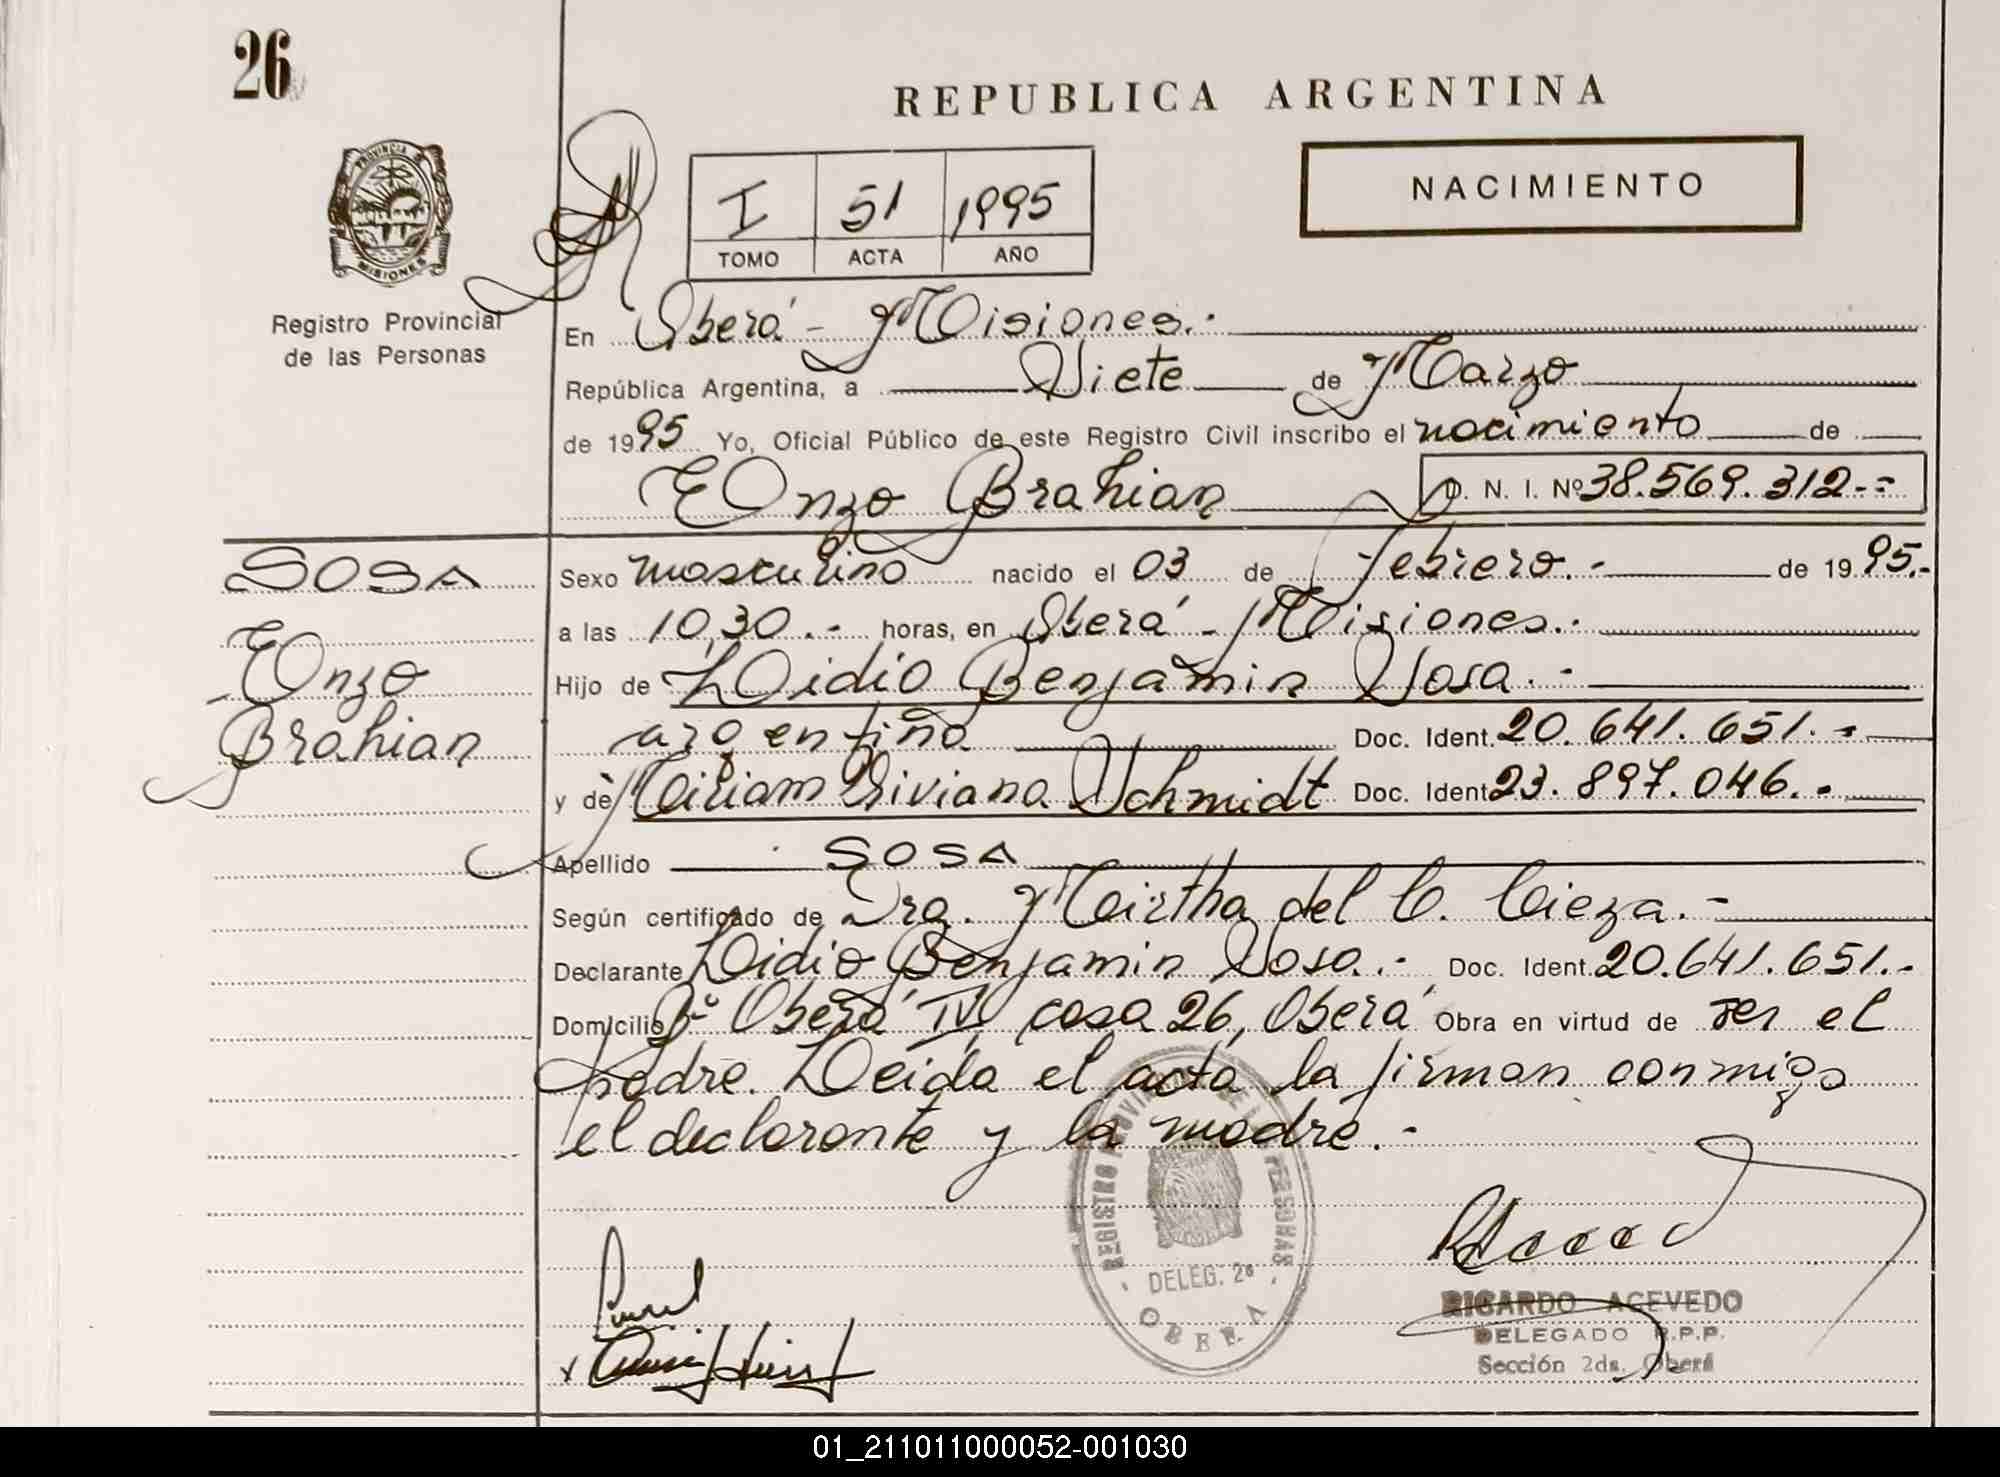 26
REPUBLICA ARGENTINA
PROVINCIA DE
MISIONES
Registro Provincial
de las Personas
I 51 1995
TOMO ACTA AÑO
NACIMIENTO
En Oberá - Misiones.-
República Argentina, a Siete de Marzo
de 1995 Yo, Oficial Público de este Registro Civil inscribo el nacimiento de
Enzo Brahian D. N. I. Nº 38.569.312.-
SOSA
Enzo
Brahian
Sexo masculino nacido el 03 de febrero.- de 1995.-
a las 10,30.- horas, en Oberá - Misiones.-
Hijo de Lidio Benjamin Sosa.-
argentino Doc. Ident. 20.641.651.-
y de Miriam Viviana Schmidt Doc. Ident 23.897.046.-
Apellido SOSA
Según certificado de Dra. Mirtha del C. Cieza.-
Declarante Lidio Benjamin Sosa.- Doc. Ident. 20.641.651.-
Domicilio Bº Oberá IV, casa 26, Oberá Obra en virtud de ser el
padre. Leída el acta, la firman conmigo
el declarante y la madre.-
REGISTRO PROVINCIAL DE LAS PERSONAS
DELEG. 2ª
OBERA
RICARDO ACEVEDO
DELEGADO R.P.P.
Sección 2da. Oberá
01_211011000052-001030